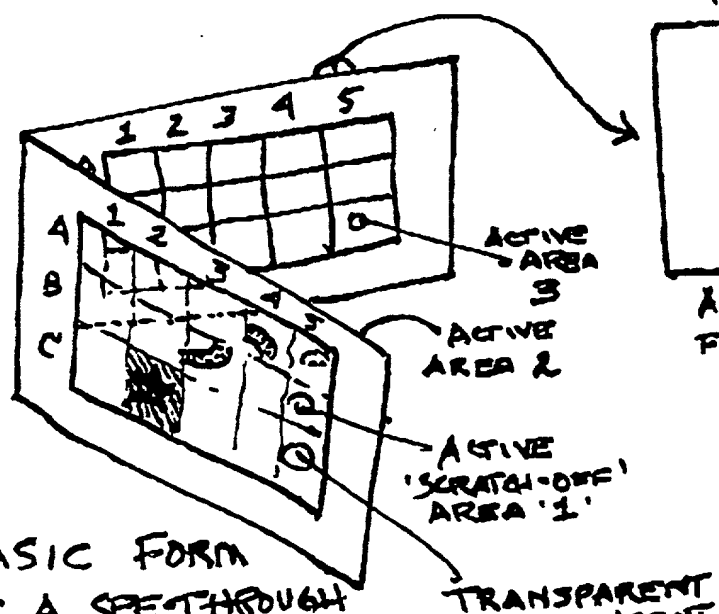 1 2 3 4 5
A
1 2 3 4 5
B
C
ACTIVE
AREA
3
ACTIVE
AREA 2
ACTIVE
'SCRATCH-OFF'
AREA '1'
ASIC FORM
A SEE-THROUGH
TRANSPARENT